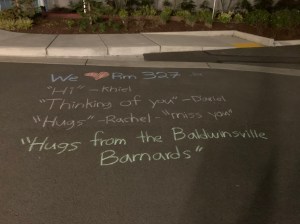 We ♥ Rm 327
"Hi" - Khiel
"Thinking of you" - Daniel
"Hugs" - Rachel - "miss you"
"Hugs from the Baldwinsville
Barnards"